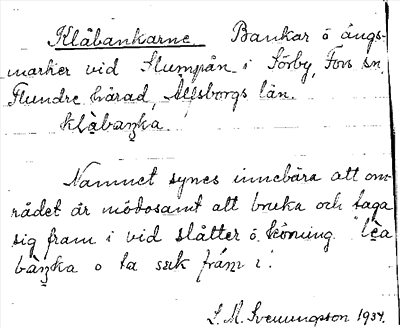 Klåbankarne. Bankar ö ängs-
marker vid Slumpån i Sörby, Fors sn.
Flundre härad, Älfsborgs län.
klåbaŋka
Namnet synes innebära att om-
rådet är mödosamt att bruka och taga
sig fram i vid slåtter ö. körning
baŋka o ta sek fråm i.
L. M. Svenungsson 1934.